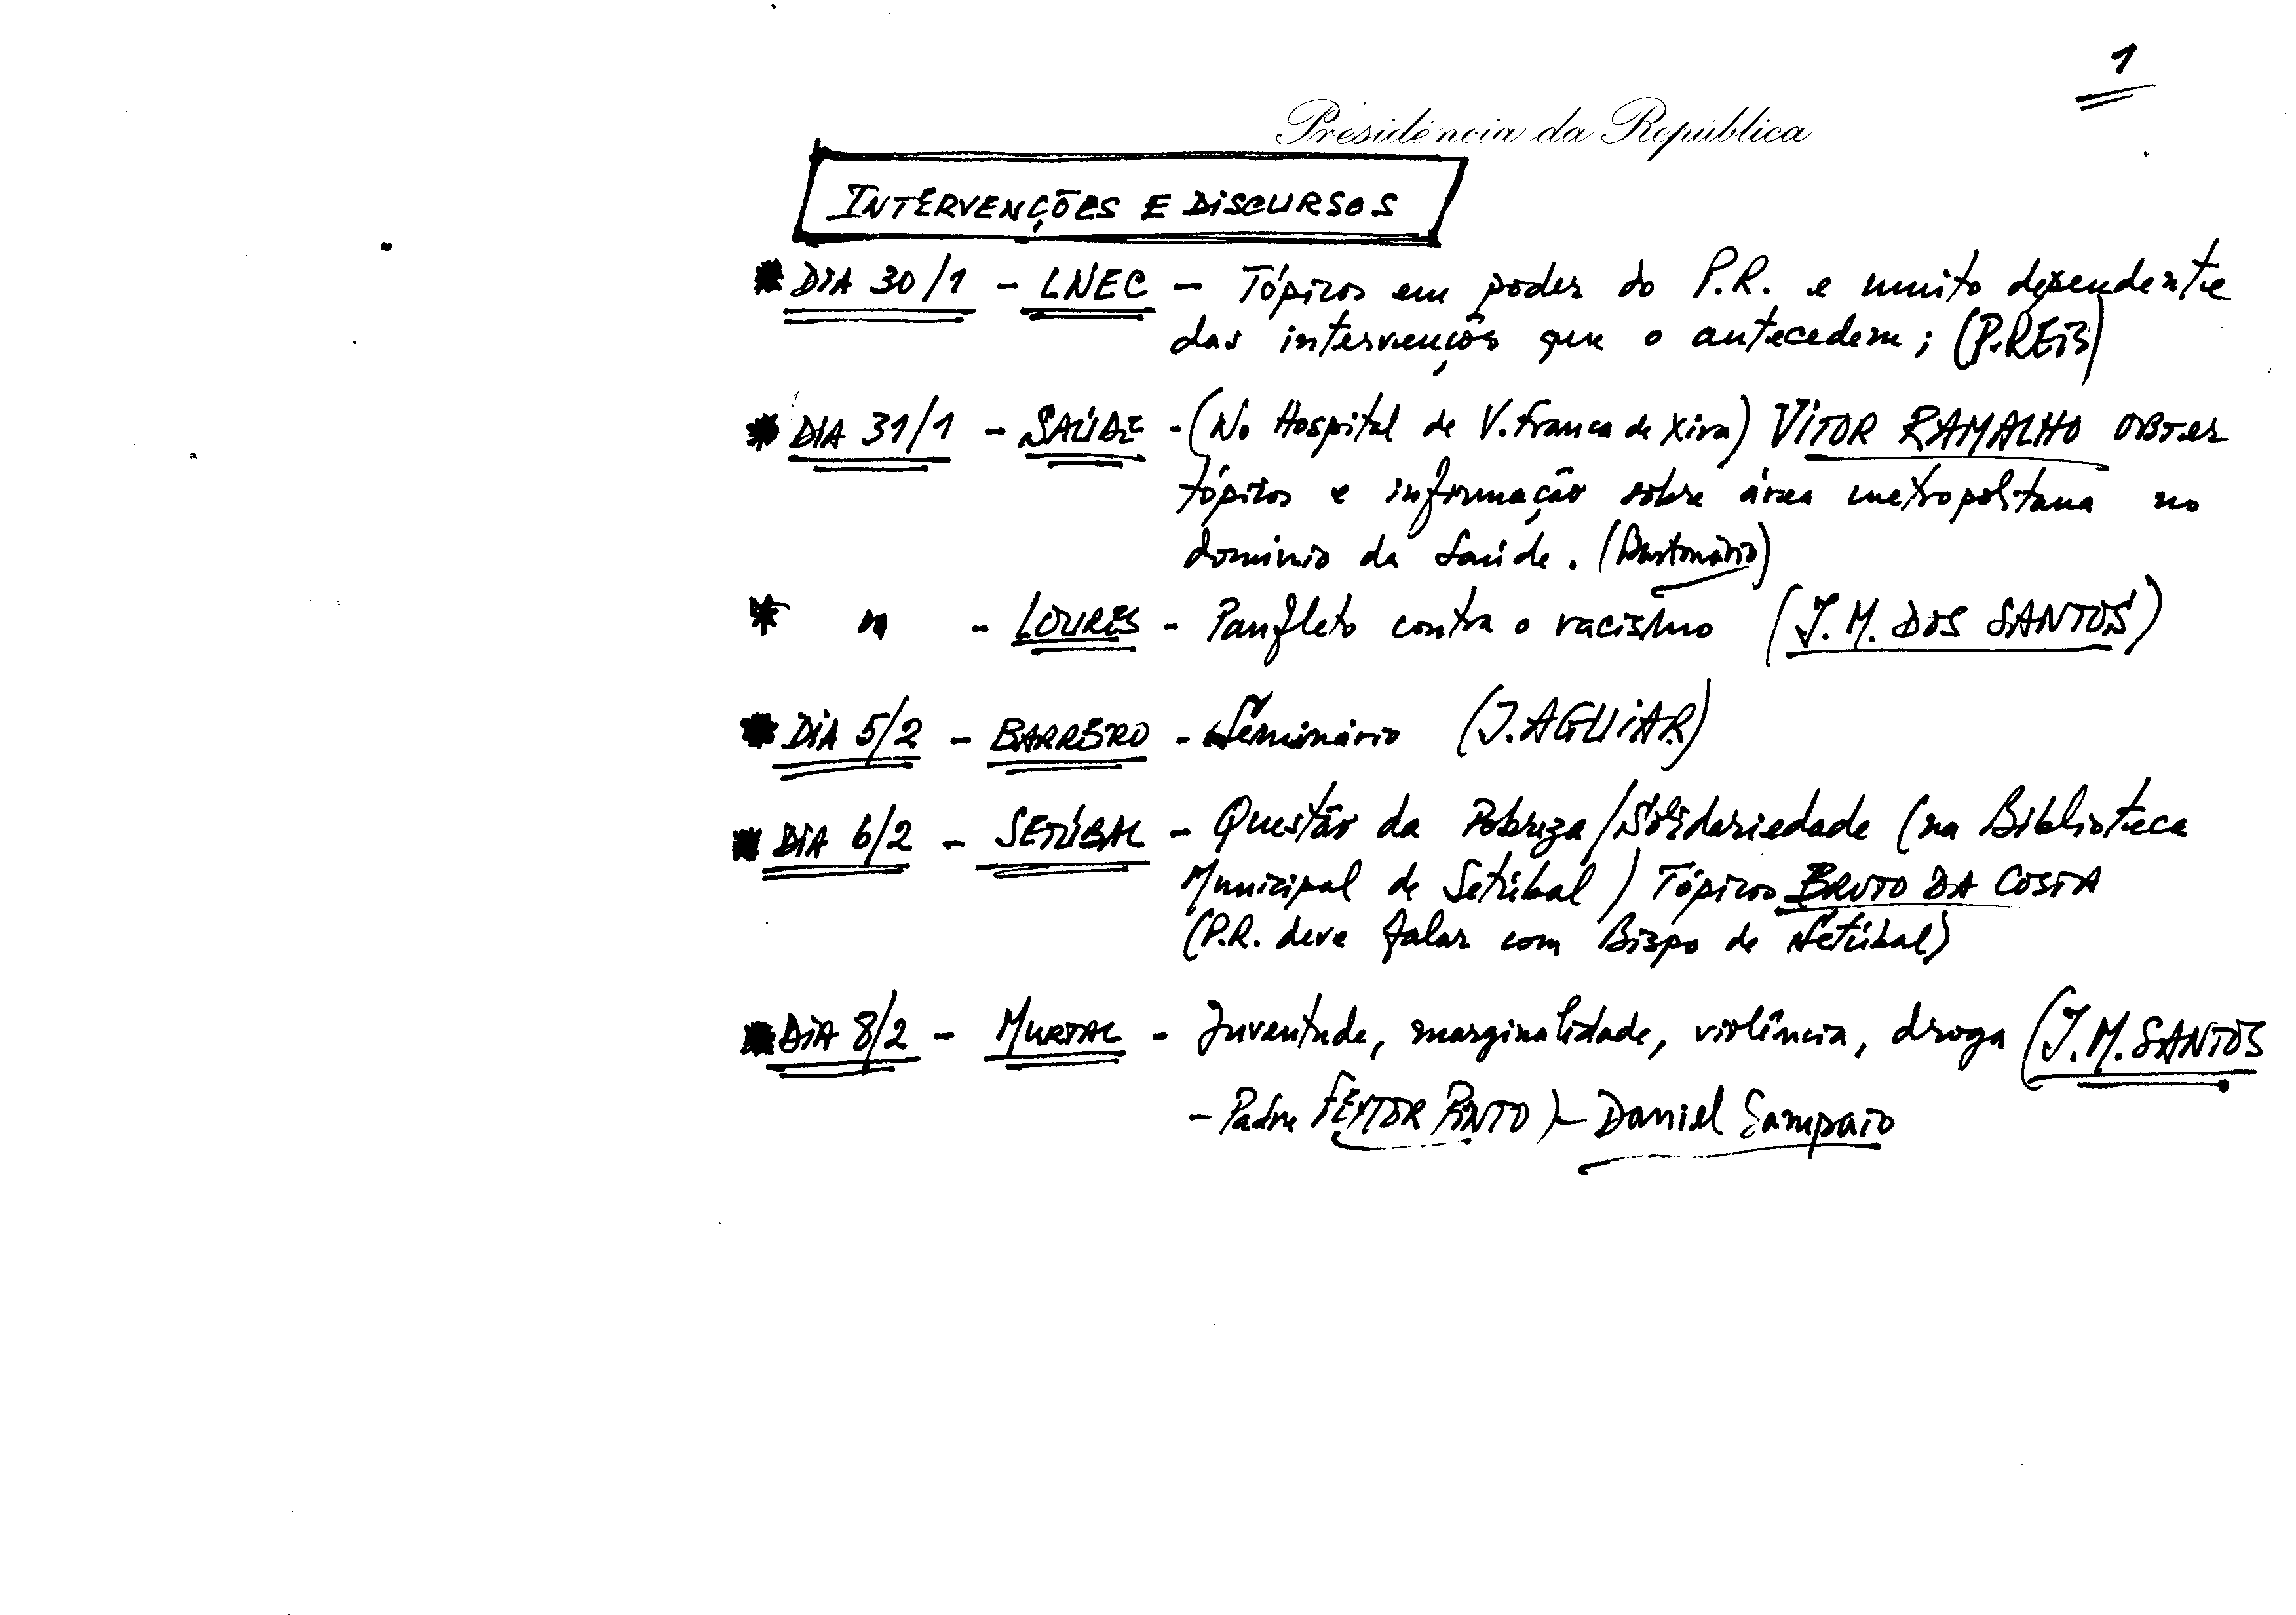 1
Presidência da República
INTERVENÇÕES E DISCURSOS
* DIA 30/1 - LNEC - Tópicos em poder do P.R. e muito dependente
das intervenções que o antecedem; (P.REIS)
* DIA 31/1 - SAÚDE - (No Hospital de V.Franca de Xira) VITOR RAMALHO OBTER
tópicos e informação sobre área metropolitana no
domínio da Saúde. (Bastonário)
* " - LOURES - Panfleto contra o racismo (J.M. DOS SANTOS)
* DIA 5/2 - BARREIRO - Seminário (J.AGUIAR)
* DIA 6/2 - SETÚBAL - Questão da Pobreza/Solidariedade (na Biblioteca
Municipal de Setúbal) Tópicos BRUTO DA COSTA
(P.R. deve falar com Bispo de Setúbal)
* DIA 8/2 - MURTAL - Juventude, marginalidade, violência, droga (J.M. SANTOS
- Padre FEYTOR PINTO) - Daniel Sampaio